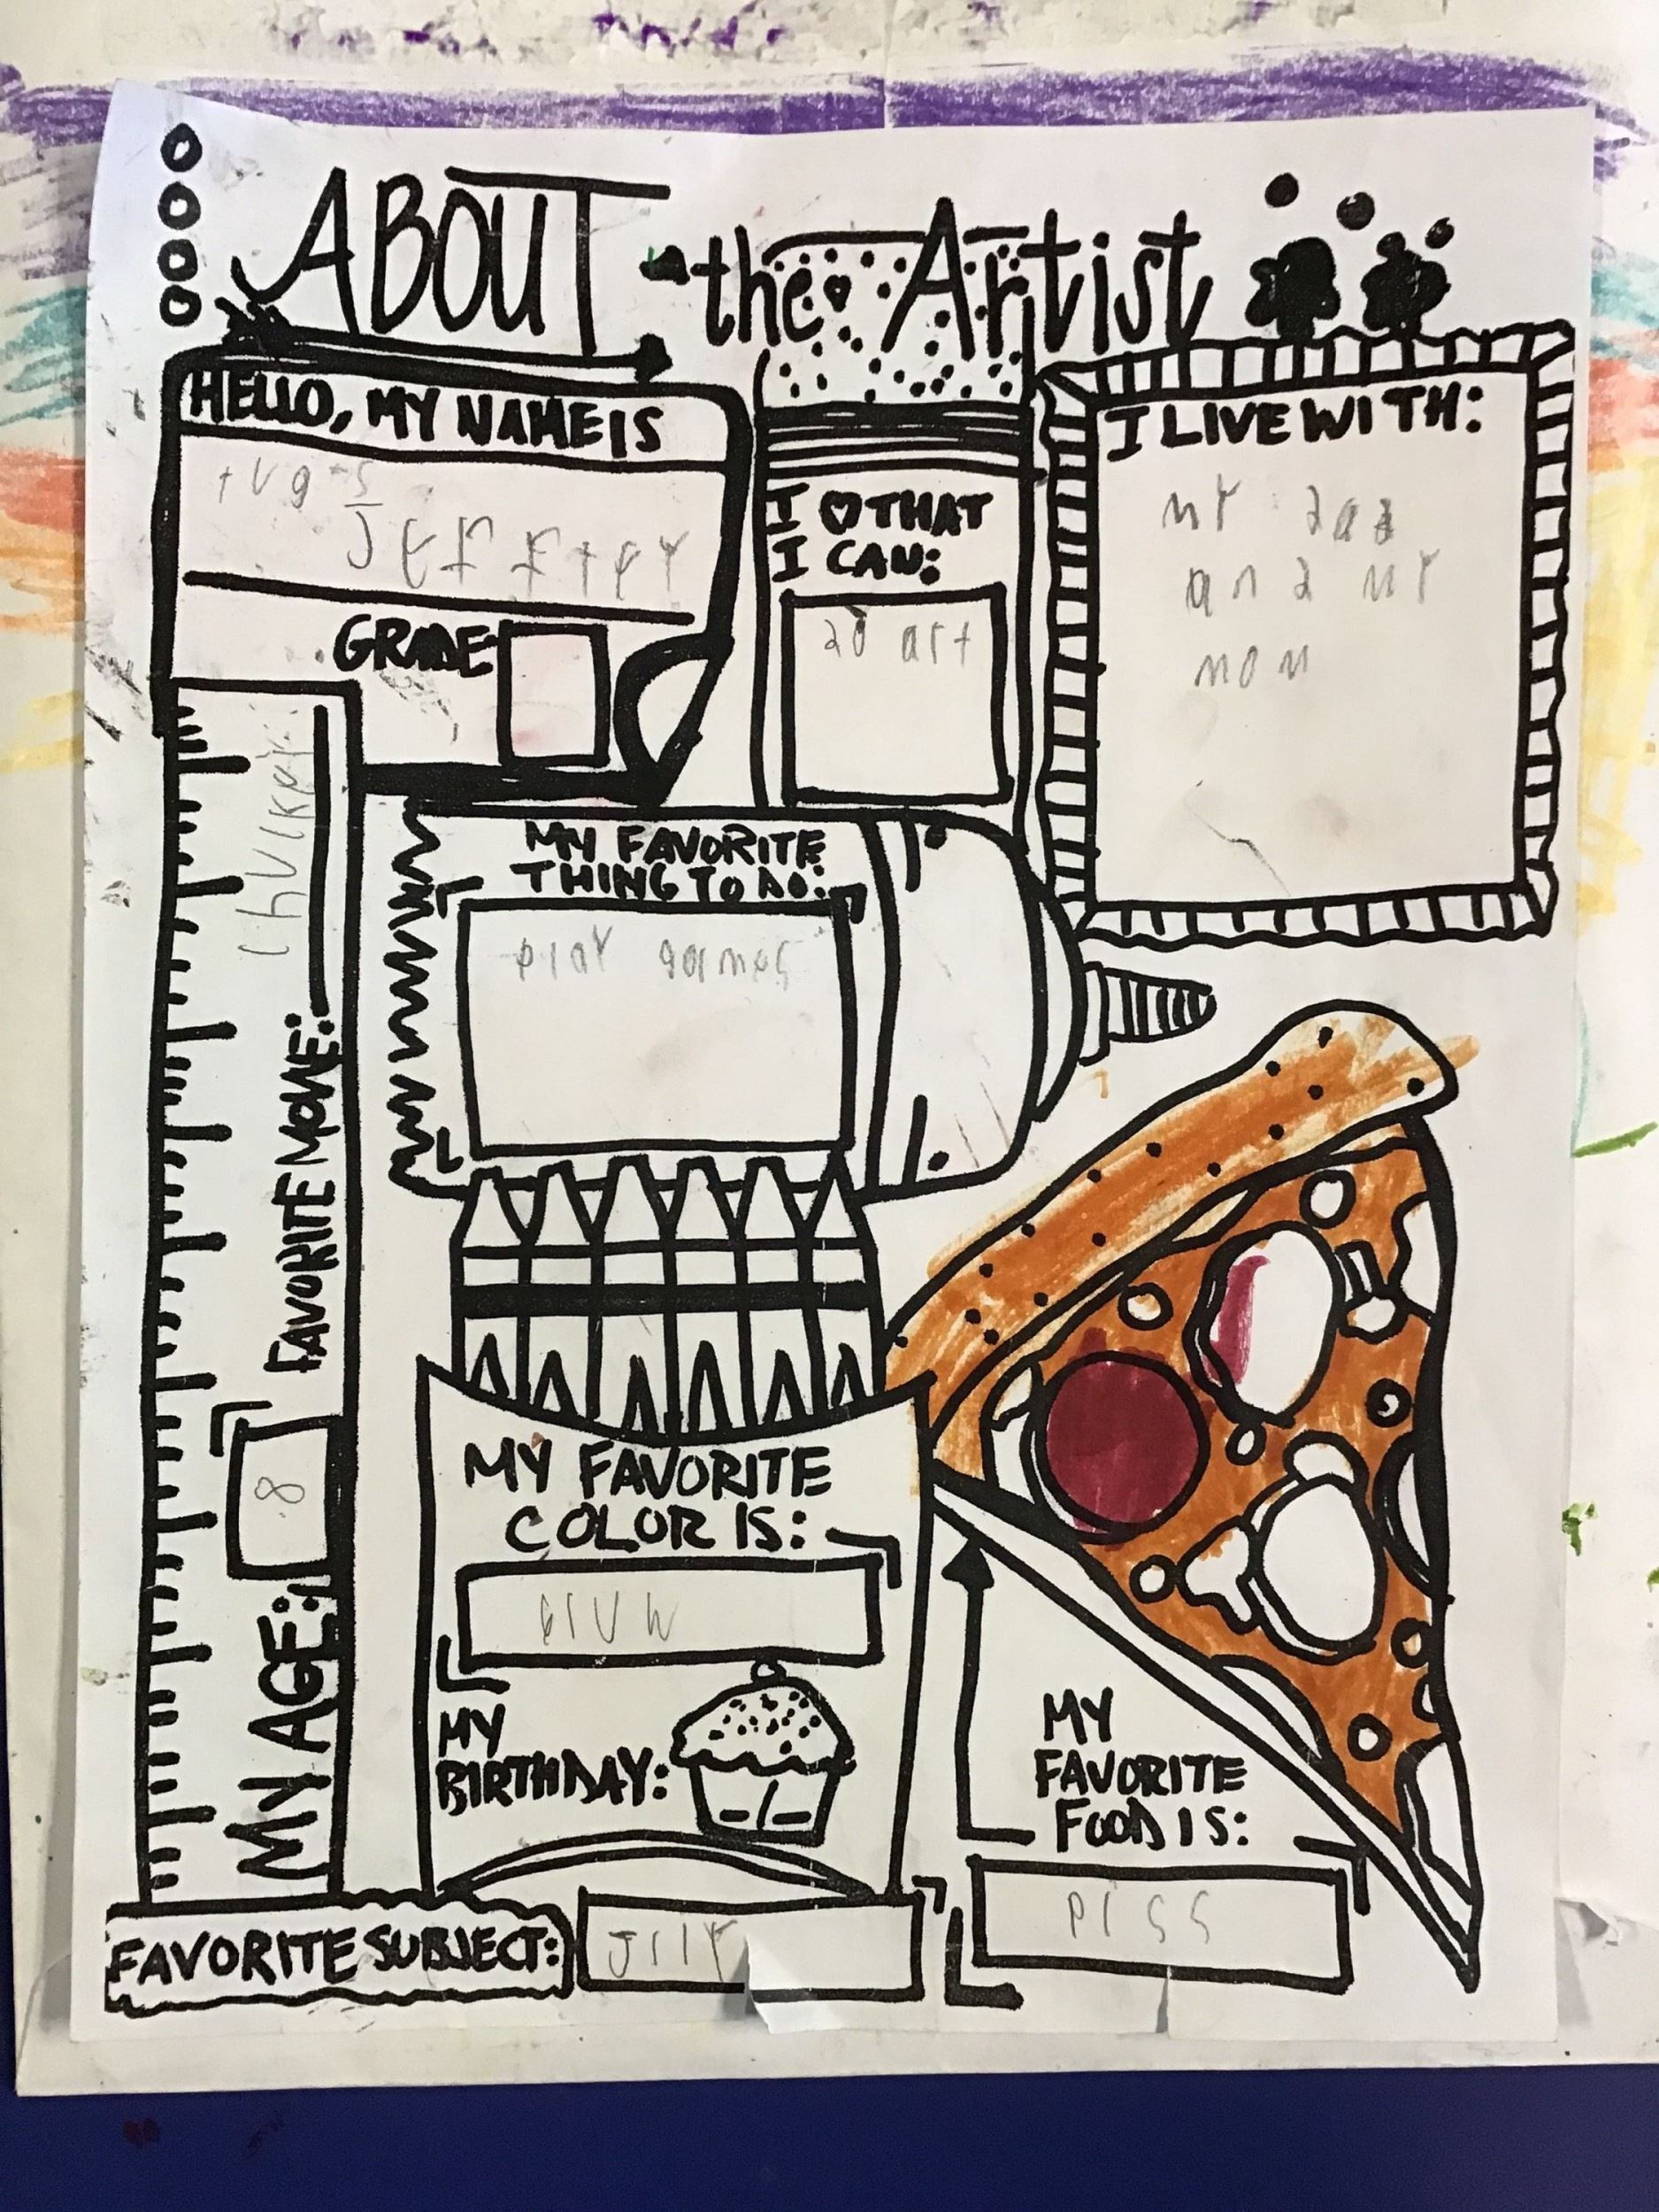 ABOUT the Artist
HELLO, MY NAME IS
GRADE
I ♡ THAT
I CAN:
do art
I LIVE WITH:
my dad
and my
mom
MY FAVORITE
THING TO DO:
play games
FAVORITE MOVIE:
MY AGE: 8
MY FAVORITE
COLOR IS:
bluw
MY
BIRTHDAY:
MY
FAVORITE
FOOD IS:
piss
FAVORITE SUBJECT: